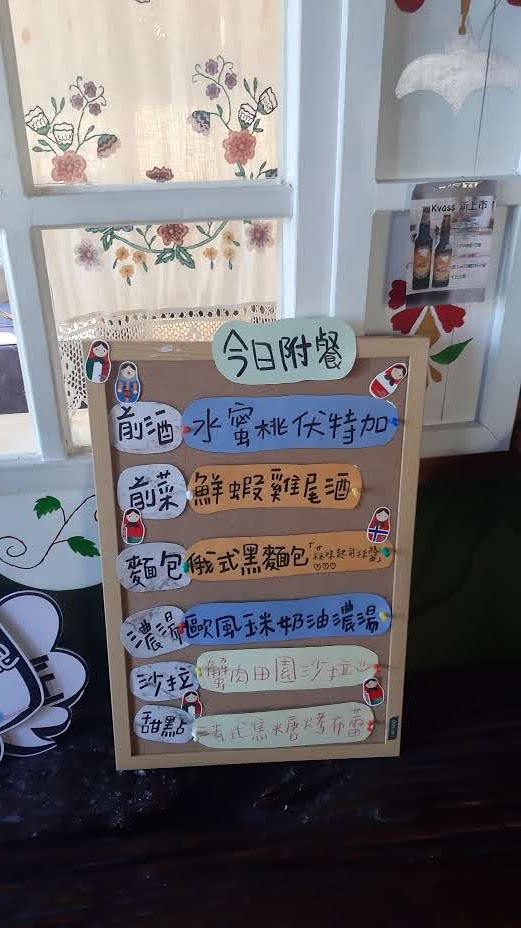 Kvass 新上市!
今日附餐
前酒 水蜜桃伏特加
前菜 鮮蝦雞尾酒
麵包 俄式黑麵包「蒜味起司抹醬」
濃湯 歐風玉米奶油濃湯
沙拉 蟹肉田園沙拉
甜點 法式焦糖烤布蕾